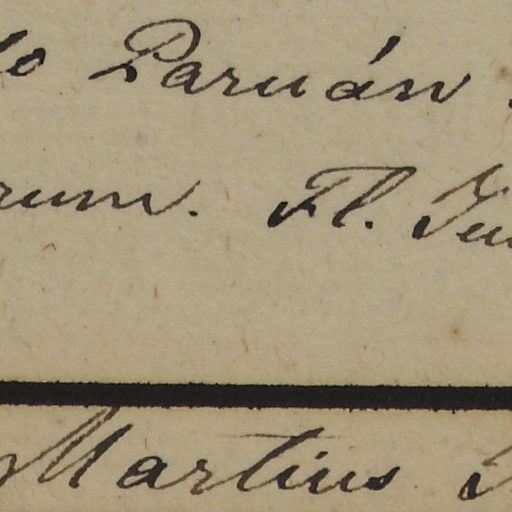 lo Paruán
rum. Fl. Ju
Martius